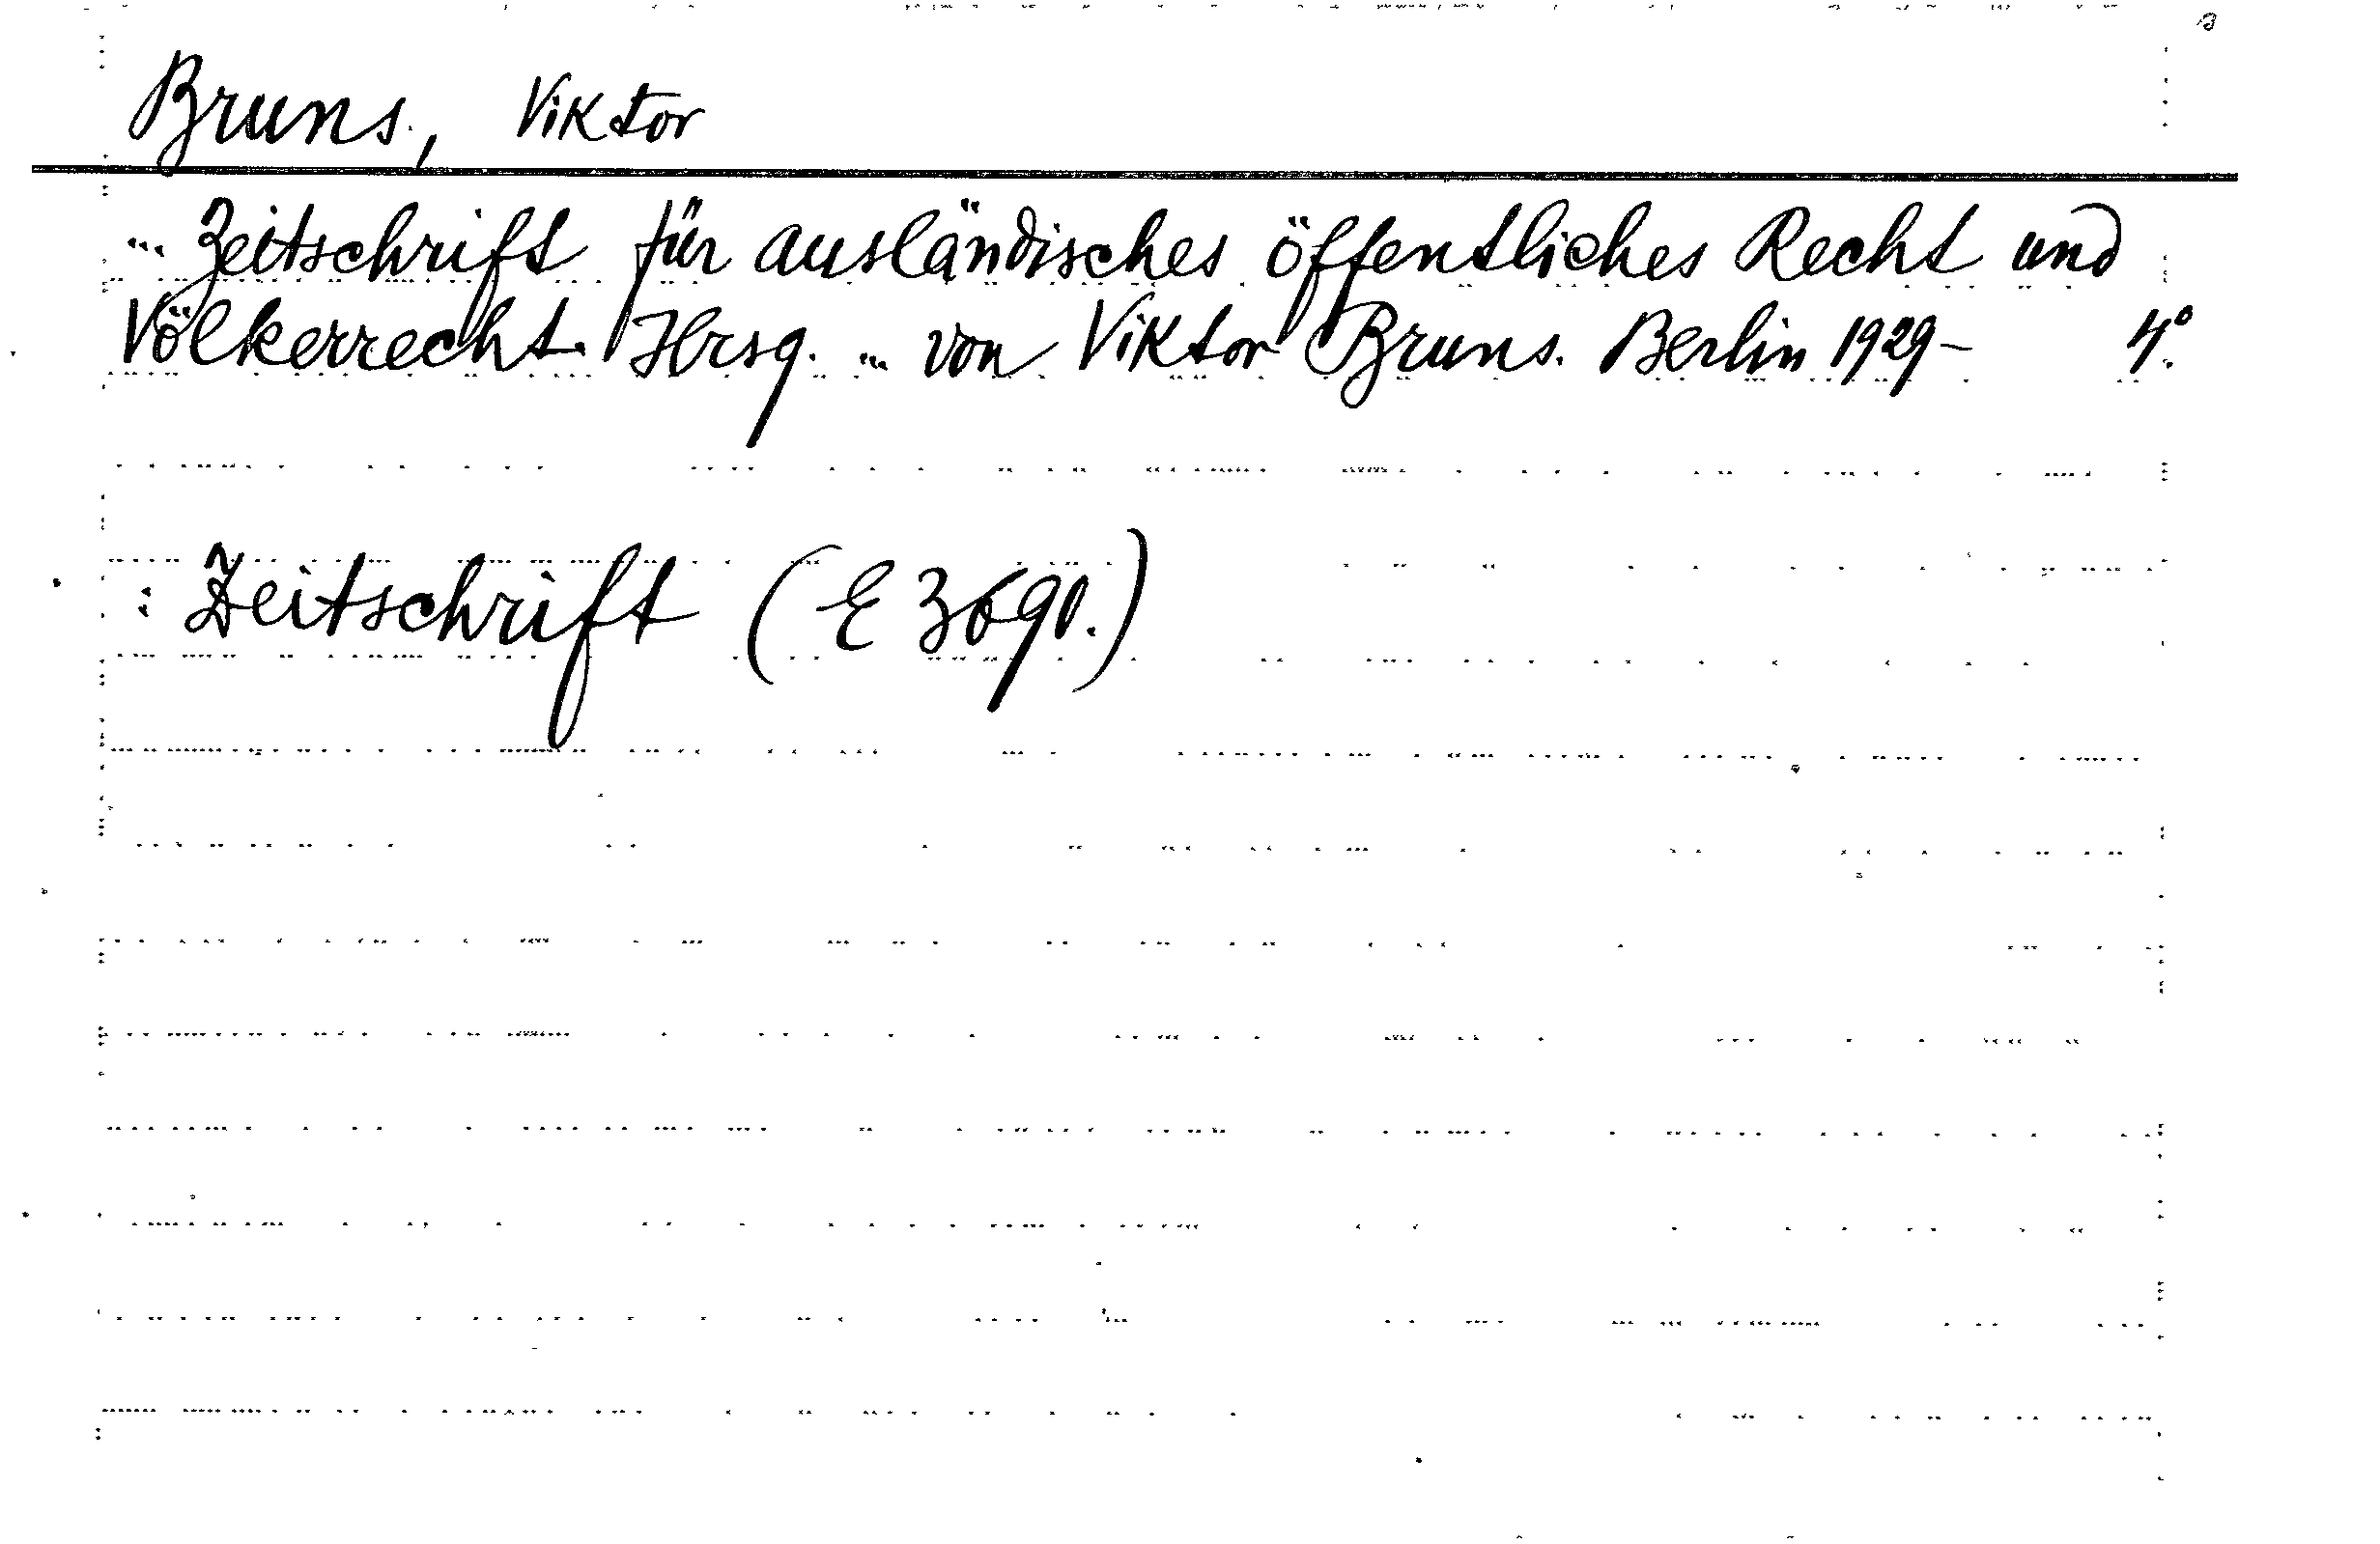 Bruns, Viktor
... Zeitschrift für ausländisches öffentliches Recht und
Völkerrecht. Hrsg. ... von Viktor Bruns. Berlin 1929- 4°.
: Zeitschrift (E 3690.)